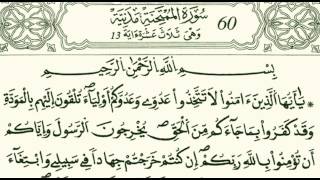 سُورَةُ الْمُمْتَحِنَةِ مَدَنِيَّةٌ
60
وَهِيَ ثَلَاثَ عَشْرَةَ ءَايَةً 13
بِسْمِ اللَّهِ الرَّحْمَٰنِ الرَّحِيمِ
يَٰأَيُّهَا الَّذِينَ ءَامَنُوا لَا تَتَّخِذُوا عَدُوِّي وَعَدُوَّكُمْ أَوْلِيَاءَ تُلْقُونَ إِلَيْهِم بِالْمَوَدَّةِ
وَقَدْ كَفَرُوا بِمَا جَاءَكُم مِّنَ الْحَقِّ يُخْرِجُونَ الرَّسُولَ وَإِيَّاكُمْ
أَن تُؤْمِنُوا بِاللَّهِ رَبِّكُمْ إِن كُنتُمْ خَرَجْتُمْ جِهَادًا فِي سَبِيلِي وَابْتِغَاءَ